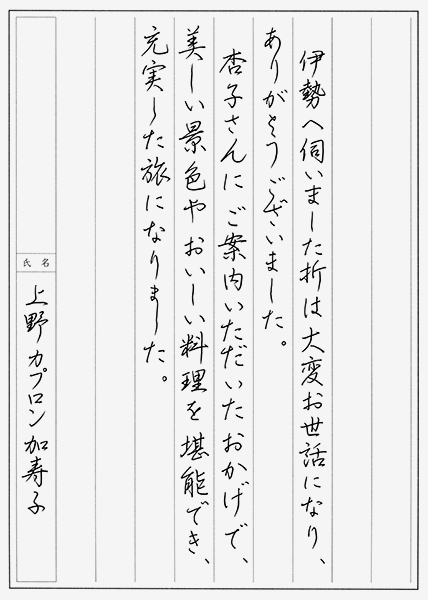 伊勢へ伺いました折は大変お世話になり、
ありがとうございました。
杏子さんにご案内いただいたおかげで、
美しい景色やおいしい料理を堪能でき、
充実した旅になりました。
氏名
上野カプロン加寿子